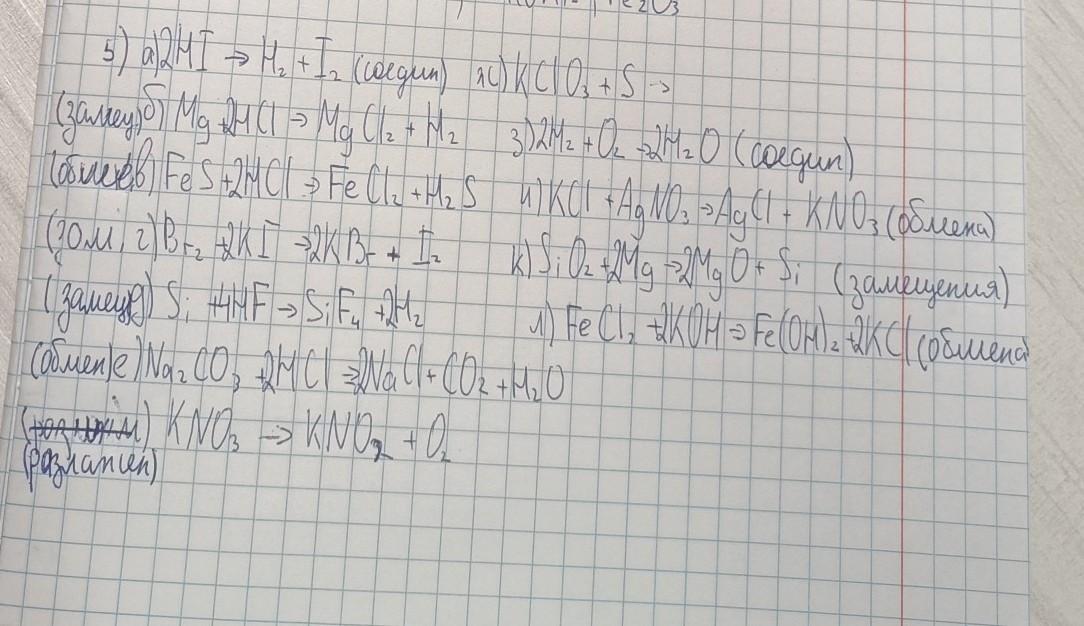 5) а) 2HI → H₂ + I₂ (соедин) ж) KClO₃ + S →
(замещ) б) Mg + 2HCl → MgCl₂ + H₂ з) 2H₂ + O₂ → 2H₂O (соедин)
в) FeS + 2HCl → FeCl₂ + H₂S и) KCl + AgNO₃ → AgCl + KNO₃ (обмена)
г) Br₂ + 2KI → 2KBr + I₂ к) SiO₂ + 2Mg → 2MgO + Si (замещения)
(замещ) д) Si + 4HF → SiF₄ + 2H₂ л) FeCl₂ + 2KOH → Fe(OH)₂ + 2KCl (обмена
(обмен) е) Na₂CO₃ + 2HCl → 2NaCl + CO₂ + H₂O
KNO₃ → KNO₂ + O₂